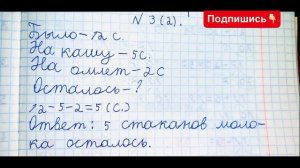 N 3(2).
Подпишись
Было-12 с.
На кашу-5с.
На омлет-2с
Осталось-?
12-5-2=5 (с.)
Ответ: 5 стаканов моло-
ка осталось.